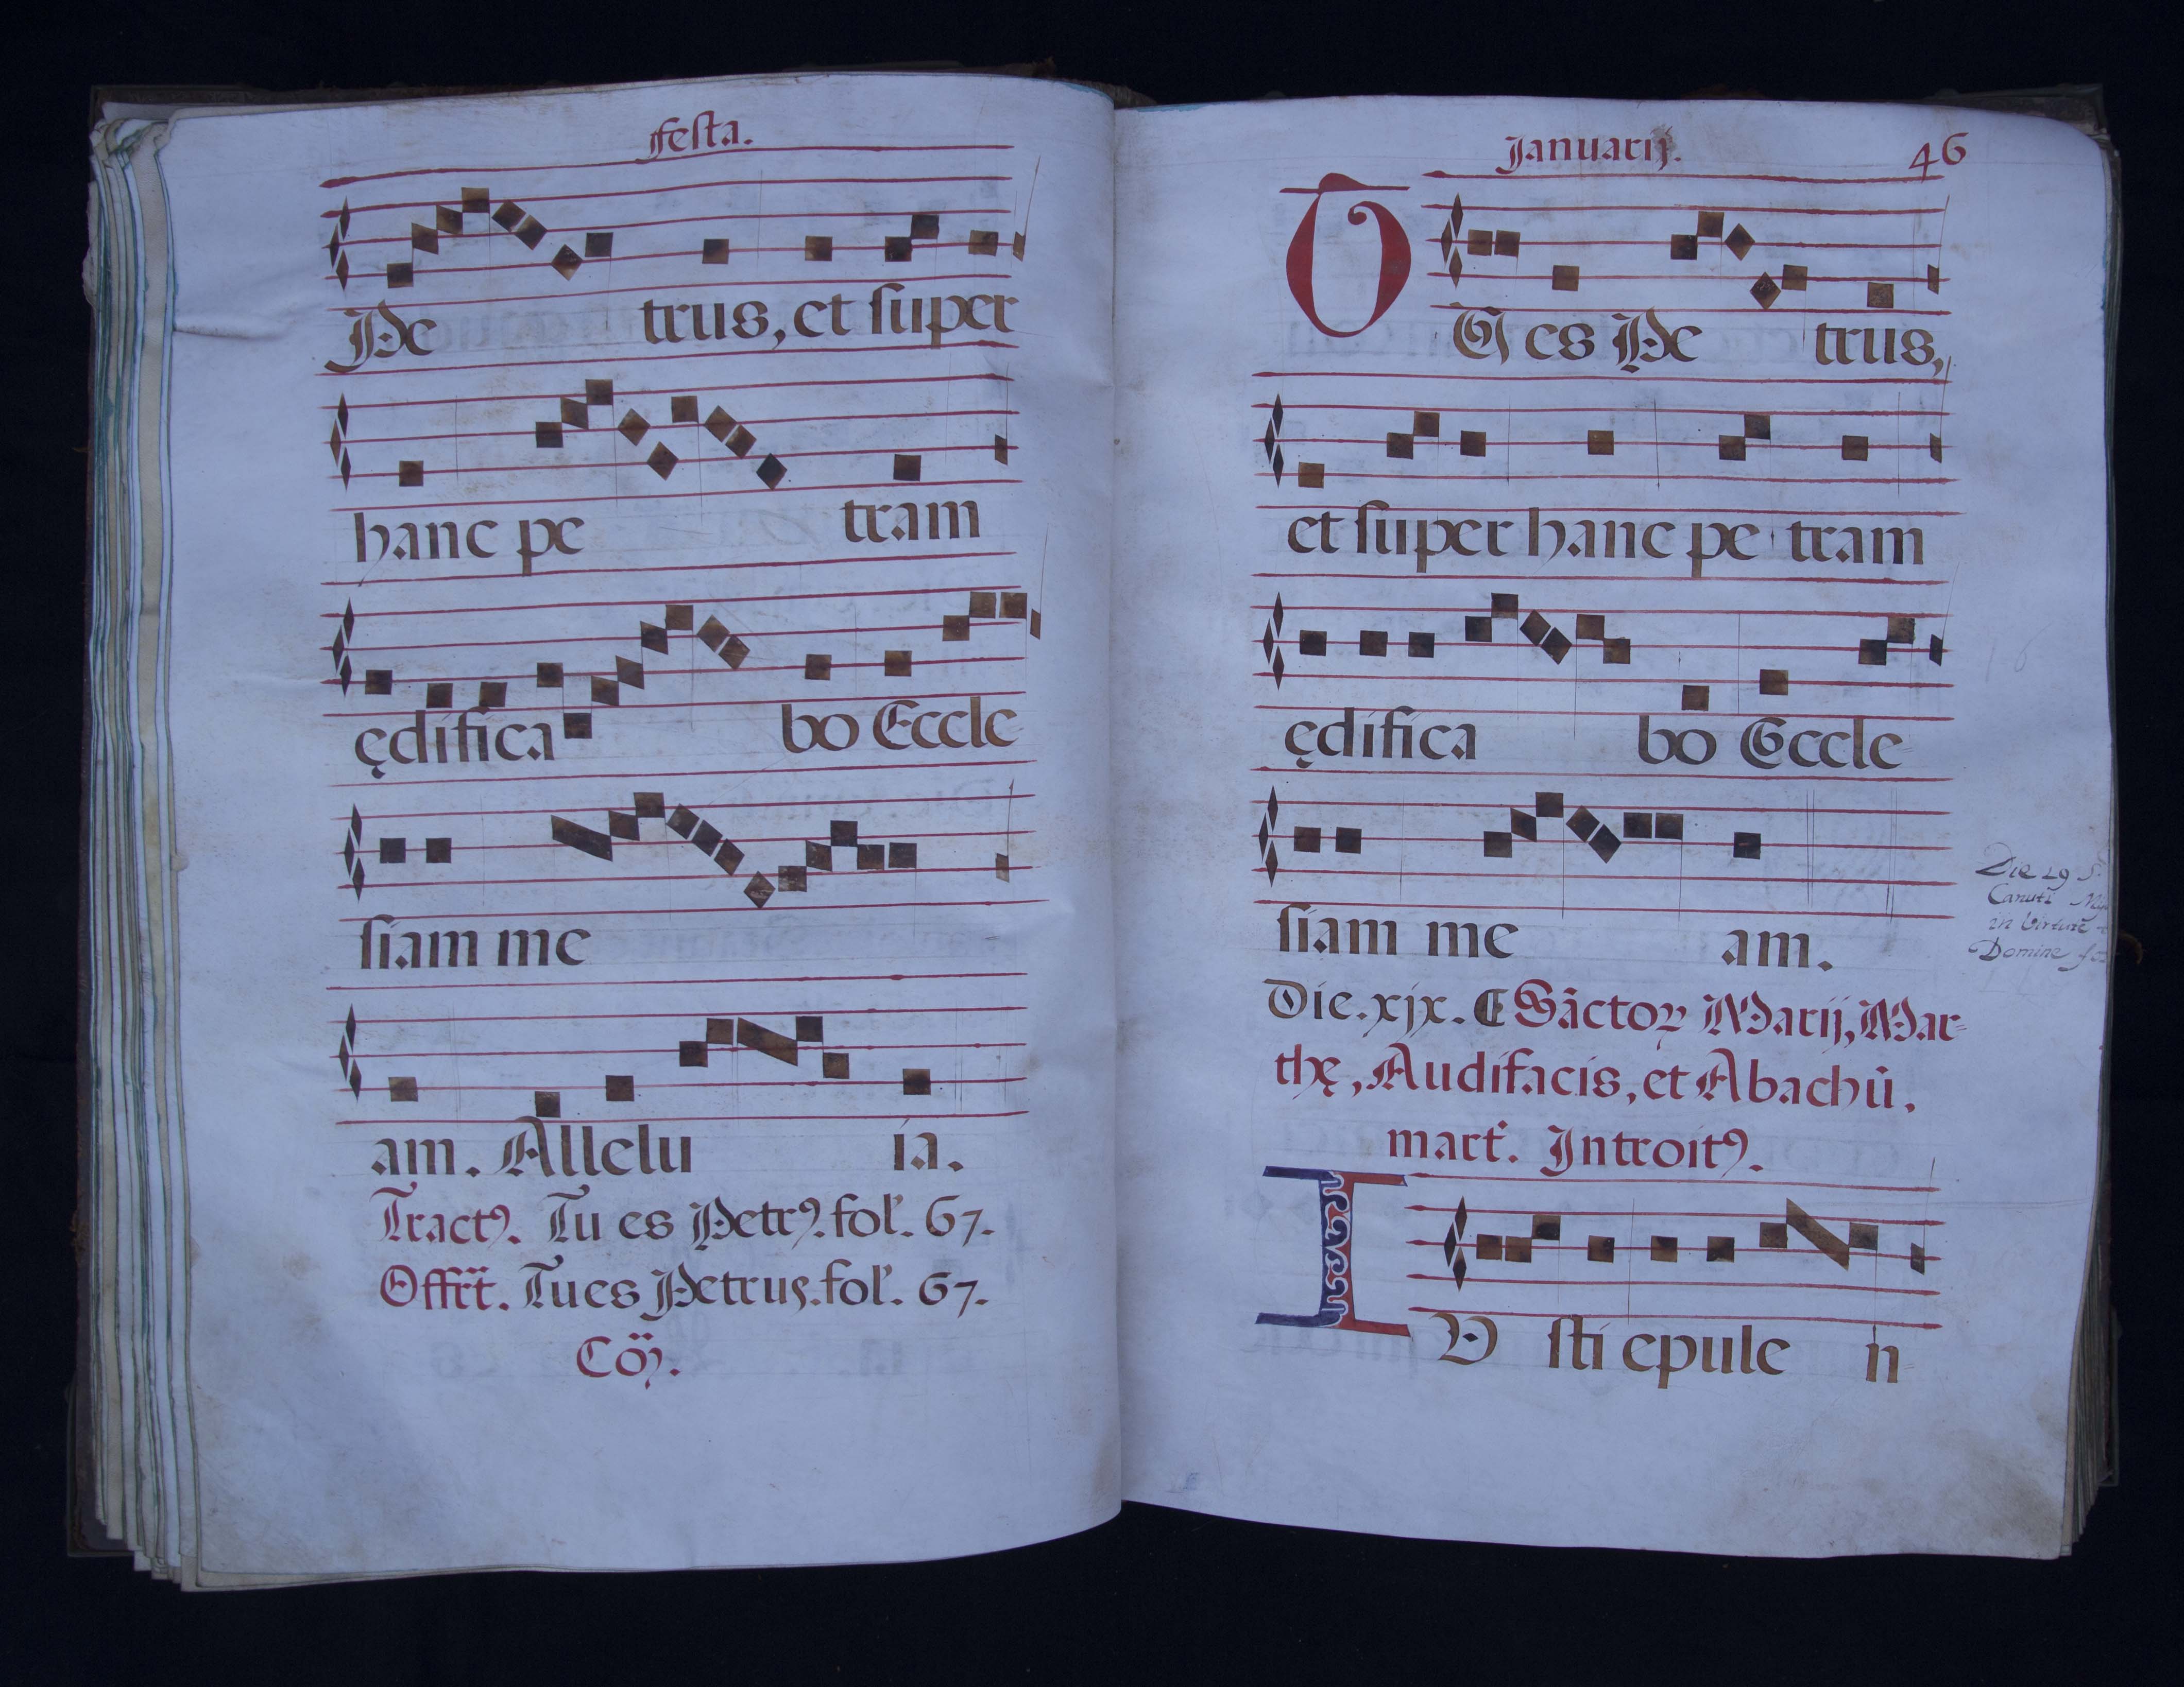 Festa.
Pe trus, et ſuper
hanc pe tram
ędifica bo Eccle
ſiam me
am. Allelu ia.
Tractꝰ. Tu es Petrꝰ. fol. 67.
Offrt. Tu es Petrus. fol. 67.
Cōꝫ.
Januarij. 46
T U es Pe trus,
et ſuper hanc pe tram
ędifica bo Eccle
ſiam me am.
Die. xjx. Sāctoꝝ Marij, Mar=
thę, Audifacis, et Abachū.
mart. Introitꝰ.
I U ſti epule n
Die 19 S.
Canuti
in Virtute
Domine